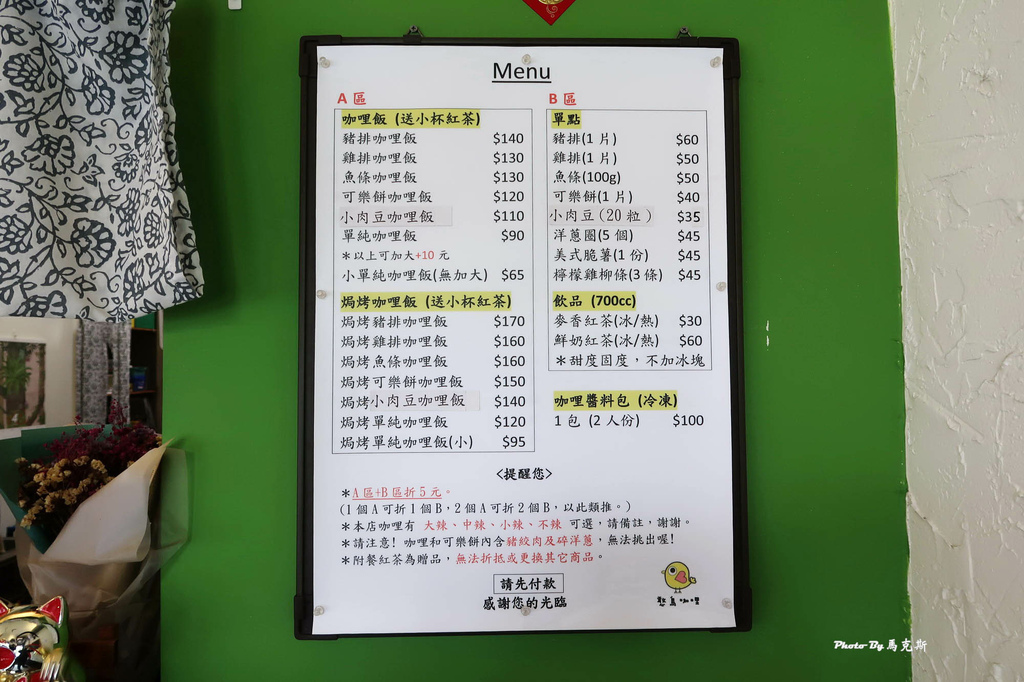 Menu
A 區
咖哩飯 (送小杯紅茶)
豬排咖哩飯 $140
雞排咖哩飯 $130
魚條咖哩飯 $130
可樂餅咖哩飯 $120
小肉豆咖哩飯 $110
單純咖哩飯 $90
＊以上可加大+10 元
小單純咖哩飯(無加大) $65
焗烤咖哩飯 (送小杯紅茶)
焗烤豬排咖哩飯 $170
焗烤雞排咖哩飯 $160
焗烤魚條咖哩飯 $160
焗烤可樂餅咖哩飯 $150
焗烤小肉豆咖哩飯 $140
焗烤單純咖哩飯 $120
焗烤單純咖哩飯(小) $95
B 區
單點
豬排(1 片) $60
雞排(1 片) $50
魚條(100g) $50
可樂餅(1 片) $40
小肉豆(20 粒) $35
洋蔥圈(5 個) $45
美式脆薯(1 份) $45
檸檬雞柳條(3 條) $45
飲品 (700cc)
麥香紅茶(冰/熱) $30
鮮奶紅茶(冰/熱) $60
＊甜度固度，不加冰塊
咖哩醬料包 (冷凍)
1 包 (2 人份) $100
<提醒您>
＊A 區+B 區折 5 元。
(1 個 A 可折 1 個 B，2 個 A 可折 2 個 B，以此類推。)
＊本店咖哩有 大辣、中辣、小辣、不辣 可選，請備註，謝謝。
＊請注意! 咖哩和可樂餅內含豬絞肉及碎洋蔥，無法挑出喔!
＊附餐紅茶為贈品，無法折抵或更換其它商品。
請先付款
感謝您的光臨
憨鳥咖哩
Photo By 馬克斯